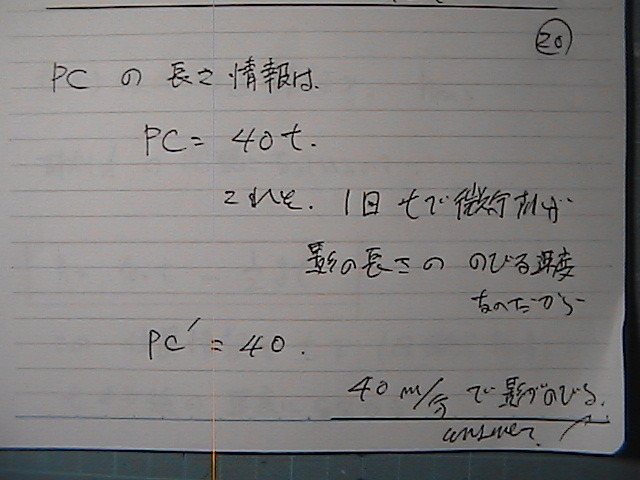 20
PCの長さ情報は、
PC = 40t.
これを、1回tで微分すれば
影の長さの のびる速度
なのだから
PC' = 40.
40 m/分 で影がのびる.
answer.